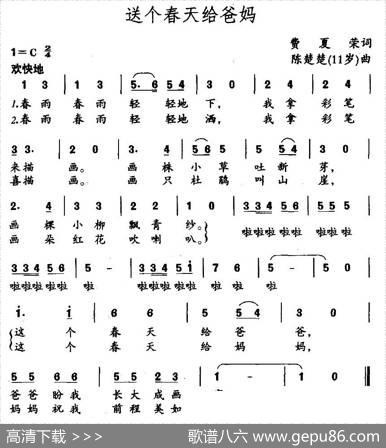 送个春天给爸妈
1=C 2/4
费 夏 荣词
陈楚楚(11岁)曲
欢快地
1 3 | 1 3 | 5·6 5 4 | 3 0 | 2 4 | 2 4 |
1.春雨 春雨 轻 轻地 下, 我拿 彩笔
2.春雨 春雨 轻 轻地 洒, 我拿 彩笔
3 3· | 2 0 | 3 0 3 | 5 4 5 | 5 5 4 | 3 0 |
来描 画。 画 株 小草 吐新 芽,
喜描 画。 画 只 杜鹃 叫山 崖,
2· 4 | 3 3 | 1 2 2 | 1 0 | 3 3 4 5 6 | 5 5 0 |
画 棵 小柳 飘青 纱。
画 朵 红花 吹喇 叭。
啦啦啦啦啦 啦啦
3 3 4 5 6 | 5 - | 3 3 4 5 i | 7 6 | 5 - | 5 0 |
啦啦啦啦啦 啦 啦啦啦啦啦 啦啦 啦
i· i | 6 6 | 5 5 4 | 3 0 |
这 个 春 天 给 爸 爸,
这 个 春 天 给 妈 妈,
5 5 6 6 | 5 5 2 3 | 1 - | 1 0 |
爸爸 盼我 长大 成画
妈妈 祝我 前程 美如
高清下载 >>>
歌谱八六 www.gepu86.com